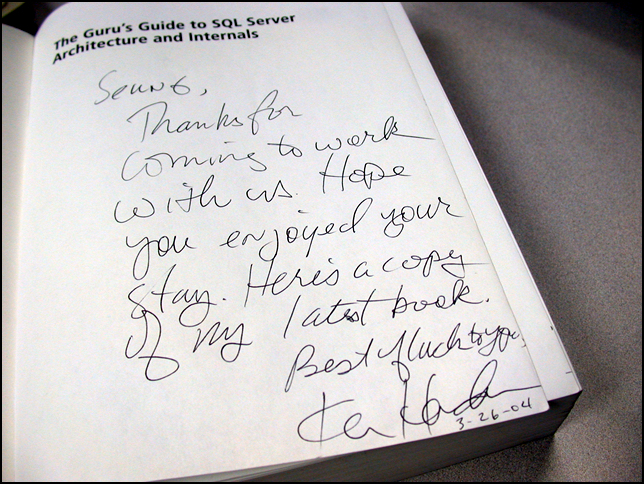 The Guru's Guide to SQL Server
Architecture and Internals
Thanks for
coming to work
with us. Hope
you enjoyed your
stay. Here's a copy
of my latest book.
Best of luck to you,
Ken
3-26-04